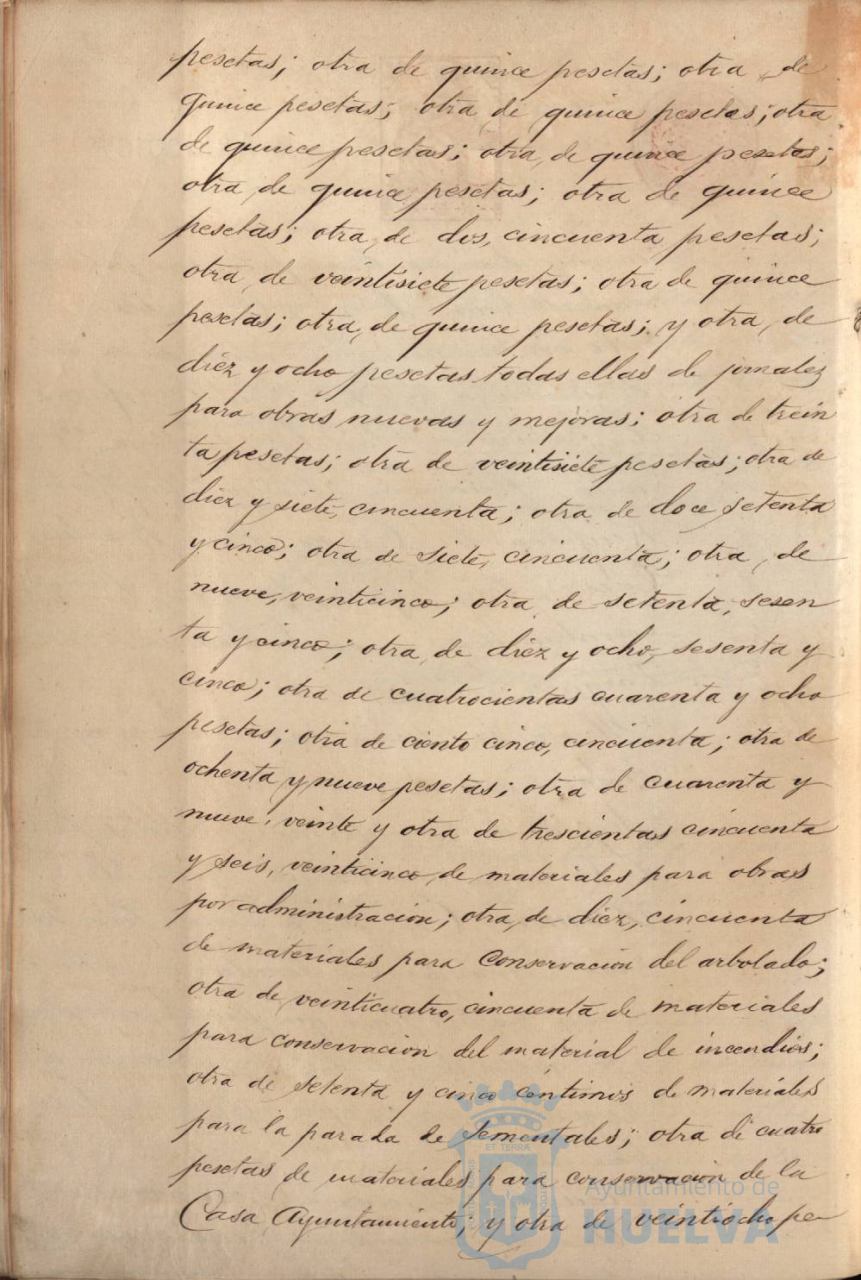 pesetas; otra de quince pesetas; otra de
quince pesetas; otra de quince pesetas; otra
de quince pesetas; otra, de quince pesetas;
otra, de quince pesetas; otra de quince
pesetas; otra, de dos, cincuenta pesetas;
otra, de veintisiete pesetas; otra de quince
pesetas; otra, de quince pesetas; y otra, de
diez y ocho pesetas todas ellas de jornalez
para obras nuevas y mejoras; otra de trein
ta pesetas; otra de veintisiete pesetas; otra de
diez y siete, cincuenta; otra de doce setenta
y cinco; otra de siete, cincuenta; otra, de
nueve, veinticinco; otra de setenta, sesen
ta y cinco; otra, de diez y ocho, sesenta y
cinco; otra de cuatrocientas cuarenta y ocho
pesetas; otra de ciento cinco, cincuenta; otra de
ochenta y nueve pesetas; otra de cuarenta y
nueve, veinte y otra de trescientas cincuenta
y seis, veinticinco, de materiales para obras
por administracion; otra, de diez, cincuenta
de materiales para conservacion del arbolado;
otra de veinticuatro, cincuenta de materiales
para conservacion del material de incendios;
otra de setenta y cinco centimos de materiales
para la parada de Sementales; otra de cuatro
pesetas de materiales para conservacion de la
Casa Ayuntamiento; y otra de veintiocho pe
ET TERRA
Ayuntamiento de
HUELVA